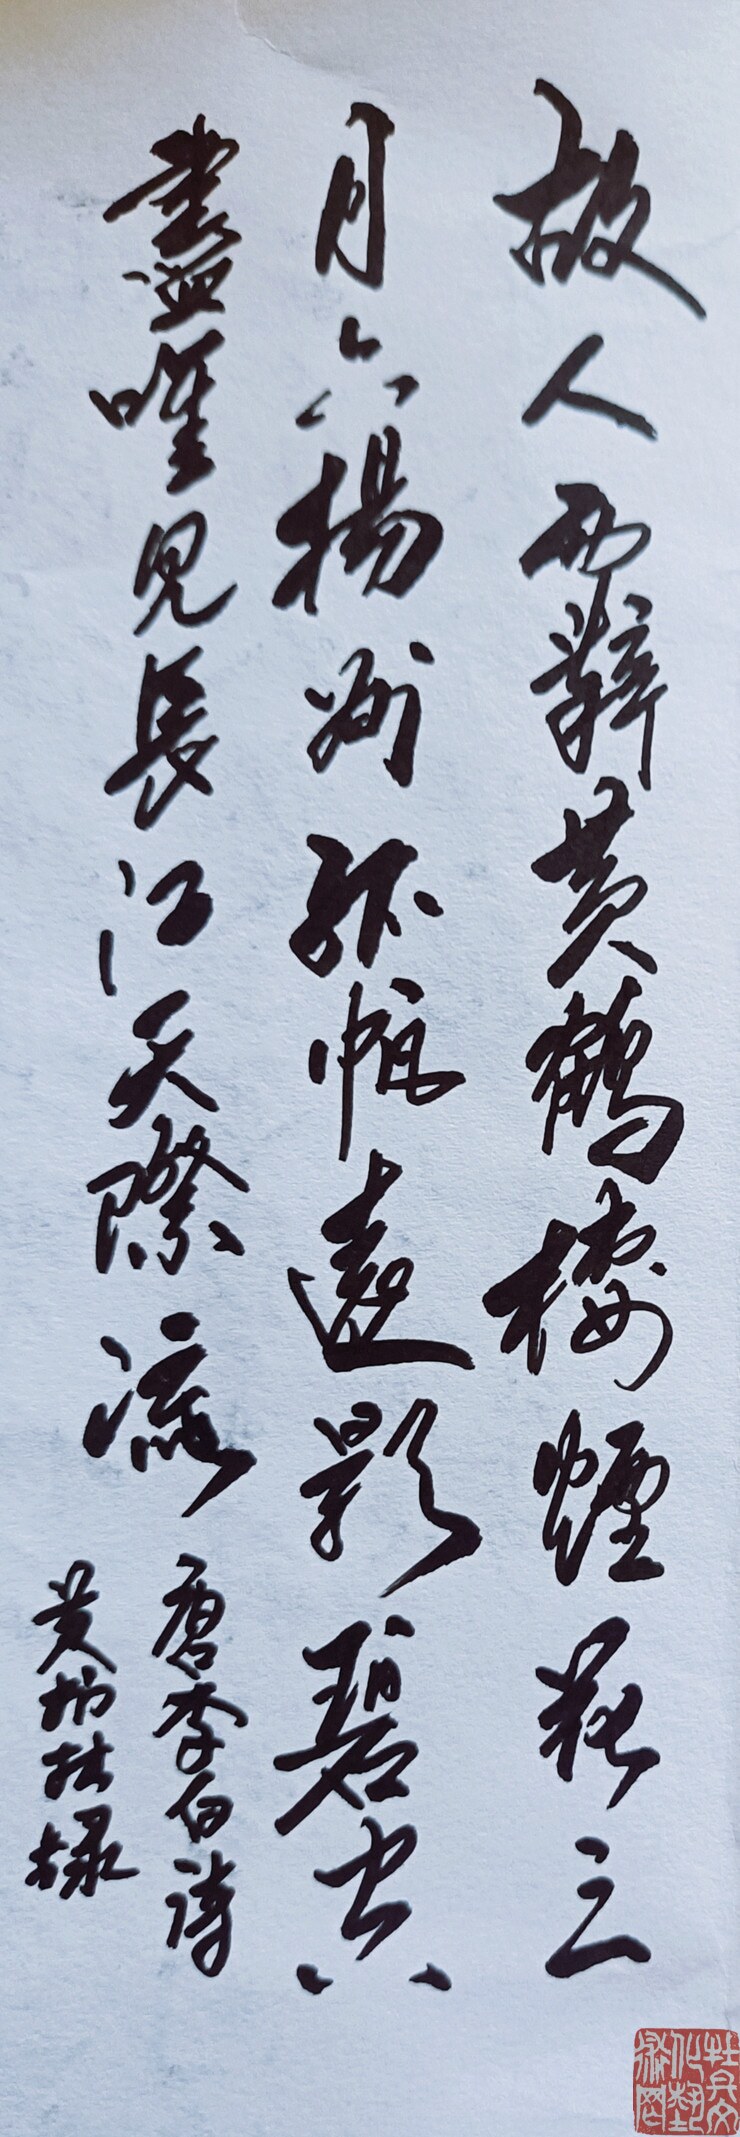 故人西辭黃鶴樓煙花三
月下揚州孤帆遠影碧空
盡唯見長江天際流
唐李白詩